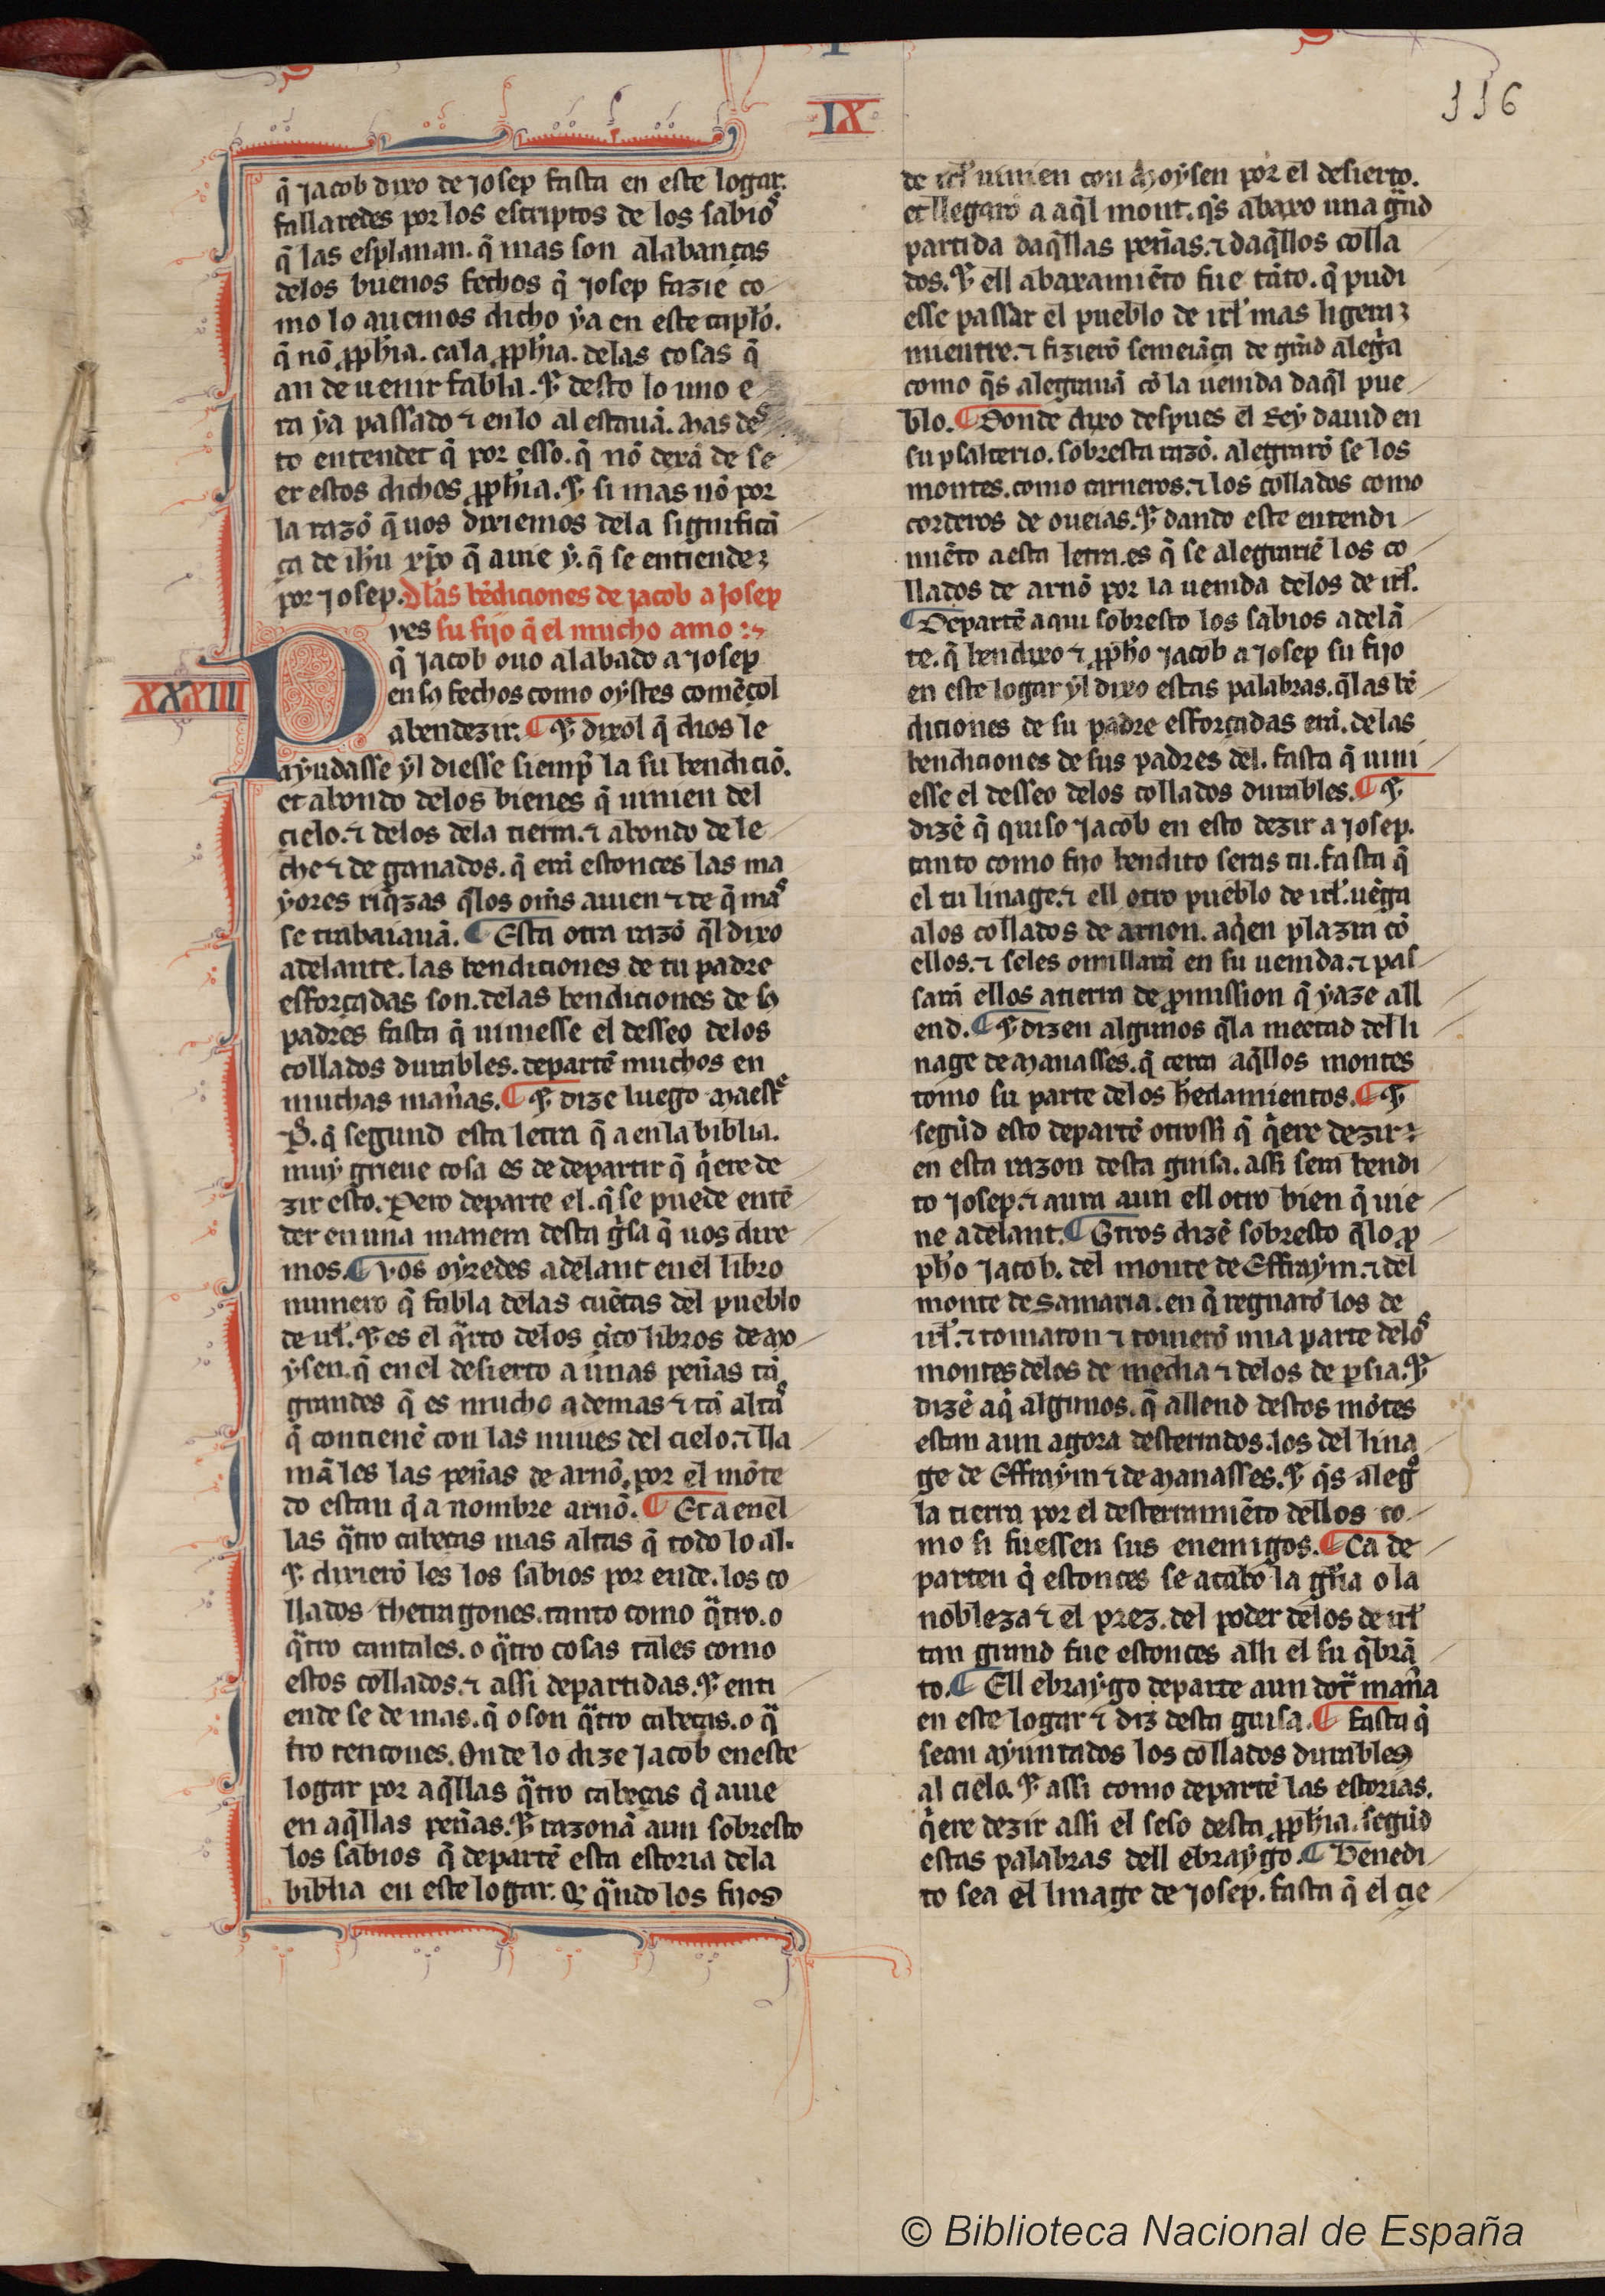 IX
116
q̃ jacob dixo de josep fasta en este logar.
fallaredes por los escriptos de los sabios
q̃ las esplanan. q̃ mas son alabanças
delos buenos fechos q̃ josep fazie co
mo lo auemos dicho ya en este capł̓o.
q̃ nõ ꝓph̃ia. ca la ꝓph̃ia. delas cosas q̃
an de uenir fabla. ⁊ desto lo uno e
ra ya passado ⁊ en lo al estauã. Mas des
to entendet q̃ por esso. q̃ nõ dexã de se
er estos dichos ꝓph̃ia. ⁊ si mas nõ por
la razõ q̃ uos dixiemos dela significã
ça de ih̃u xp̃o q̃ auie y. q̃ se entiende
por josep. Dlas bẽdiciones de jacob a josep
su fijo q̃ el mucho amo :~
XXXIIII
Pves
q̃ jacob ouo alabado a josep
en sꝯ fechos como oystes comẽçol
a bendezir. ¶ ⁊ dixol q̃ dios le
ayudasse yl diesse siemp̃ la su bendiciõ.
et abondo delos bienes q̃ uinien del
cielo. ⁊ delos dela tierra. ⁊ abondo de le
che ⁊ de ganados. q̃ erã estonces las ma
yores riq̃zas q̃los om̃s auien ⁊ de q̃ mas
se trabaiauã. ¶ Esta otra razõ q̃l dixo
adelante. las bendiciones de tu padre
esforçadas son. delas bendiciones de sꝯ
padres fasta q̃ uiniesse el desseo delos
collados durables. departẽ muchos en
muchas mañas. ¶ ⁊ dize luego maestre
P̃. q̃ segund esta letra q̃ a en la biblia.
muy grieue cosa es de departir q̃ q̃ere de
zir esto. Pero departe el. q̃ se puede entẽ
der en una manera desta g̃sa q̃ uos dire
mos. ¶ Vos oyredes adelant en el libro
numero q̃ fabla delas cuẽtas del pueblo
de isrł. ⁊ es el q̃rto delos çĩco libros de mo
ysen. q̃ en el desierto a unas peñas tã
grandes q̃ es mucho ademas ⁊ tã altas
q̃ contienẽ con las nuues del cielo. ⁊ lla
mã les las peñas de arnõ. por el mõte
do estan q̃ a nombre arnõ. ¶ Et a en el
las q̃tro cabeças mas altas q̃ todo lo al.
⁊ dixierõ les los sabios por ende. los co
llados thetragones. tanto como q̃tro. o
q̃tro cantales. o q̃tro cosas tales como
estos collados. ⁊ assi departidas. ⁊ enti
ende se de mas. q̃ o son q̃tro cabeças. o q̃
tro rencones. Onde lo dize Jacob en este
logar por aq̃llas q̃tro cabeças q̃ auie
en aq̃llas peñas. ⁊ razonã aun sobresto
los sabios q̃ departẽ esta estoria dela
biblia en este logar. Q̃ q̃ndo los fijos
de isrł uinien con Moysen por el desierto.
et llegarõ a aq̃l mont. q̃s abaxo una g̃nd
partida daq̃llas peñas. ⁊ daq̃llos colla
dos. ⁊ ell abaxamiẽto fue tãto. q̃ pudi
esse passar el pueblo de isrł mas ligera
mientre. ⁊ fizierõ semeiãça de grãd aleg̃a
como q̃s alegrauã cõ la uenida daq̃l pue
blo. ¶ Donde dixo despues el Rey dauid en
su psalterio. sobresta razõ. alegrarõ se los
montes. como carneros. ⁊ los collados como
corderos de oueias. ⁊ dando este entendi
miẽto a esta letra. es q̃ se alegrariẽ los co
llados de arnõ por la uenida delos de isrł.
¶ Departẽ aqui sobresto los sabios adelã
te. q̃ bendixo ⁊ ꝓph̃o jacob a josep su fijo
en este logar yl dixo estas palabras. q̃ las bẽ
diciones de su padre esforçadas erã. delas
bendiciones de sus padres del. fasta q̃ uini
esse el desseo delos collados durables. ¶ ⁊
dizẽ q̃ quiso jacob en esto dezir a josep.
tanto como fijo bendito seras tu. fasta q̃
el tu linage. ⁊ ell otro pueblo de isrł. uẽga
alos collados de arnon. aq̃en plazra cõ
ellos. ⁊ seles omillarã en su uenida. ⁊ pas
sarã ellos a tierra de ꝓmission q̃ yaze all
end. ¶ ⁊ dizen algunos q̃ la meetad del li
nage de Manasses. q̃ cerca aq̃llos montes
tomo su parte delos h̃edamientos. ¶ ⁊
segũd esto departẽ otrossi q̃ q̃ere dezir
en esta razon desta guisa. assi sera bendi
to josep. ⁊ aura aun ell otro bien q̃ uie
ne adelant. ¶ Otros dizẽ sobresto q̃ lo ꝓ
ph̃o Jacob. del monte de Effraym. ⁊ del
monte de samaria. en q̃ regnarõ los de
isrł. ⁊ tomaron ⁊ touierõ una parte delos
montes delos de media ⁊ delos de ꝑsia. ⁊
dizẽ aq̃ algunos. q̃ allend destos mõtes
estan aun agora desterrados. los del lina
ge de Effraym ⁊ de Manasses. ⁊ q̃s alegro
la tierra por el desterramiẽto dellos co
mo si fuessen sus enemigos. ¶ Ca de
parten q̃ estonces se acabo la gł̓ia o la
nobleza ⁊ el prez. del poder delos de isrł
tan grand fue estonces alli el su q̃brã
to. ¶ Ell ebraygo departe aun dotra mañа
en este logar ⁊ diz desta guisa. ¶ fasta q̃
sean ayuntados los collados durables
al cielo. ⁊ assi como departẽ las estorias.
q̃ere dezir assi el seso desta ꝓph̃ia. segũd
estas palabras dell ebraygo. ¶ Benedi
to sea el linage de josep. fasta q̃ el cie
© Biblioteca Nacional de España